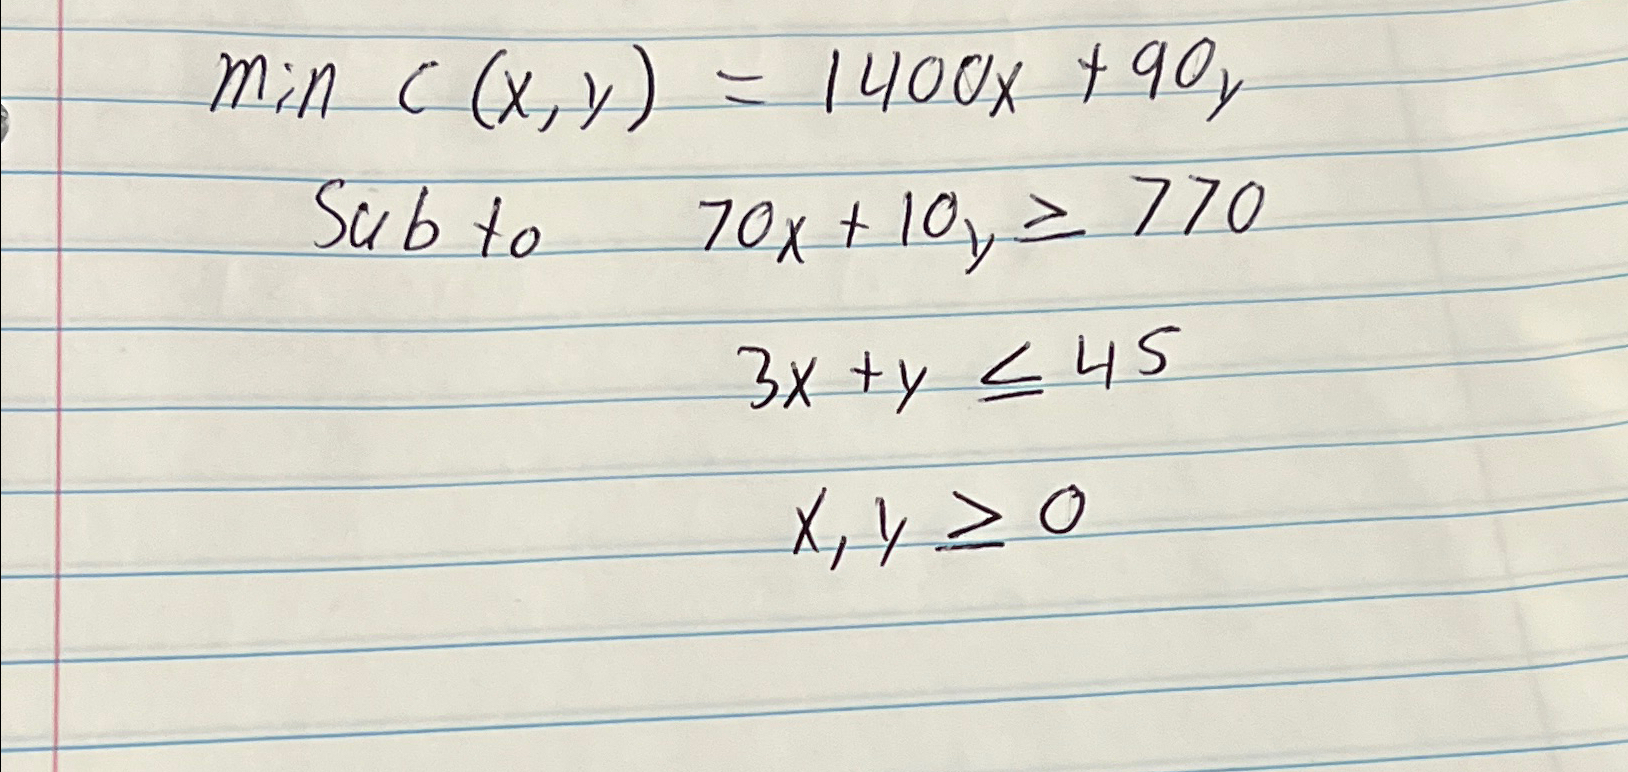 min c (x, y) = 1400x + 90y
Sub to 70x + 10y ≥ 770
3x + y ≤ 45
x, y ≥ 0